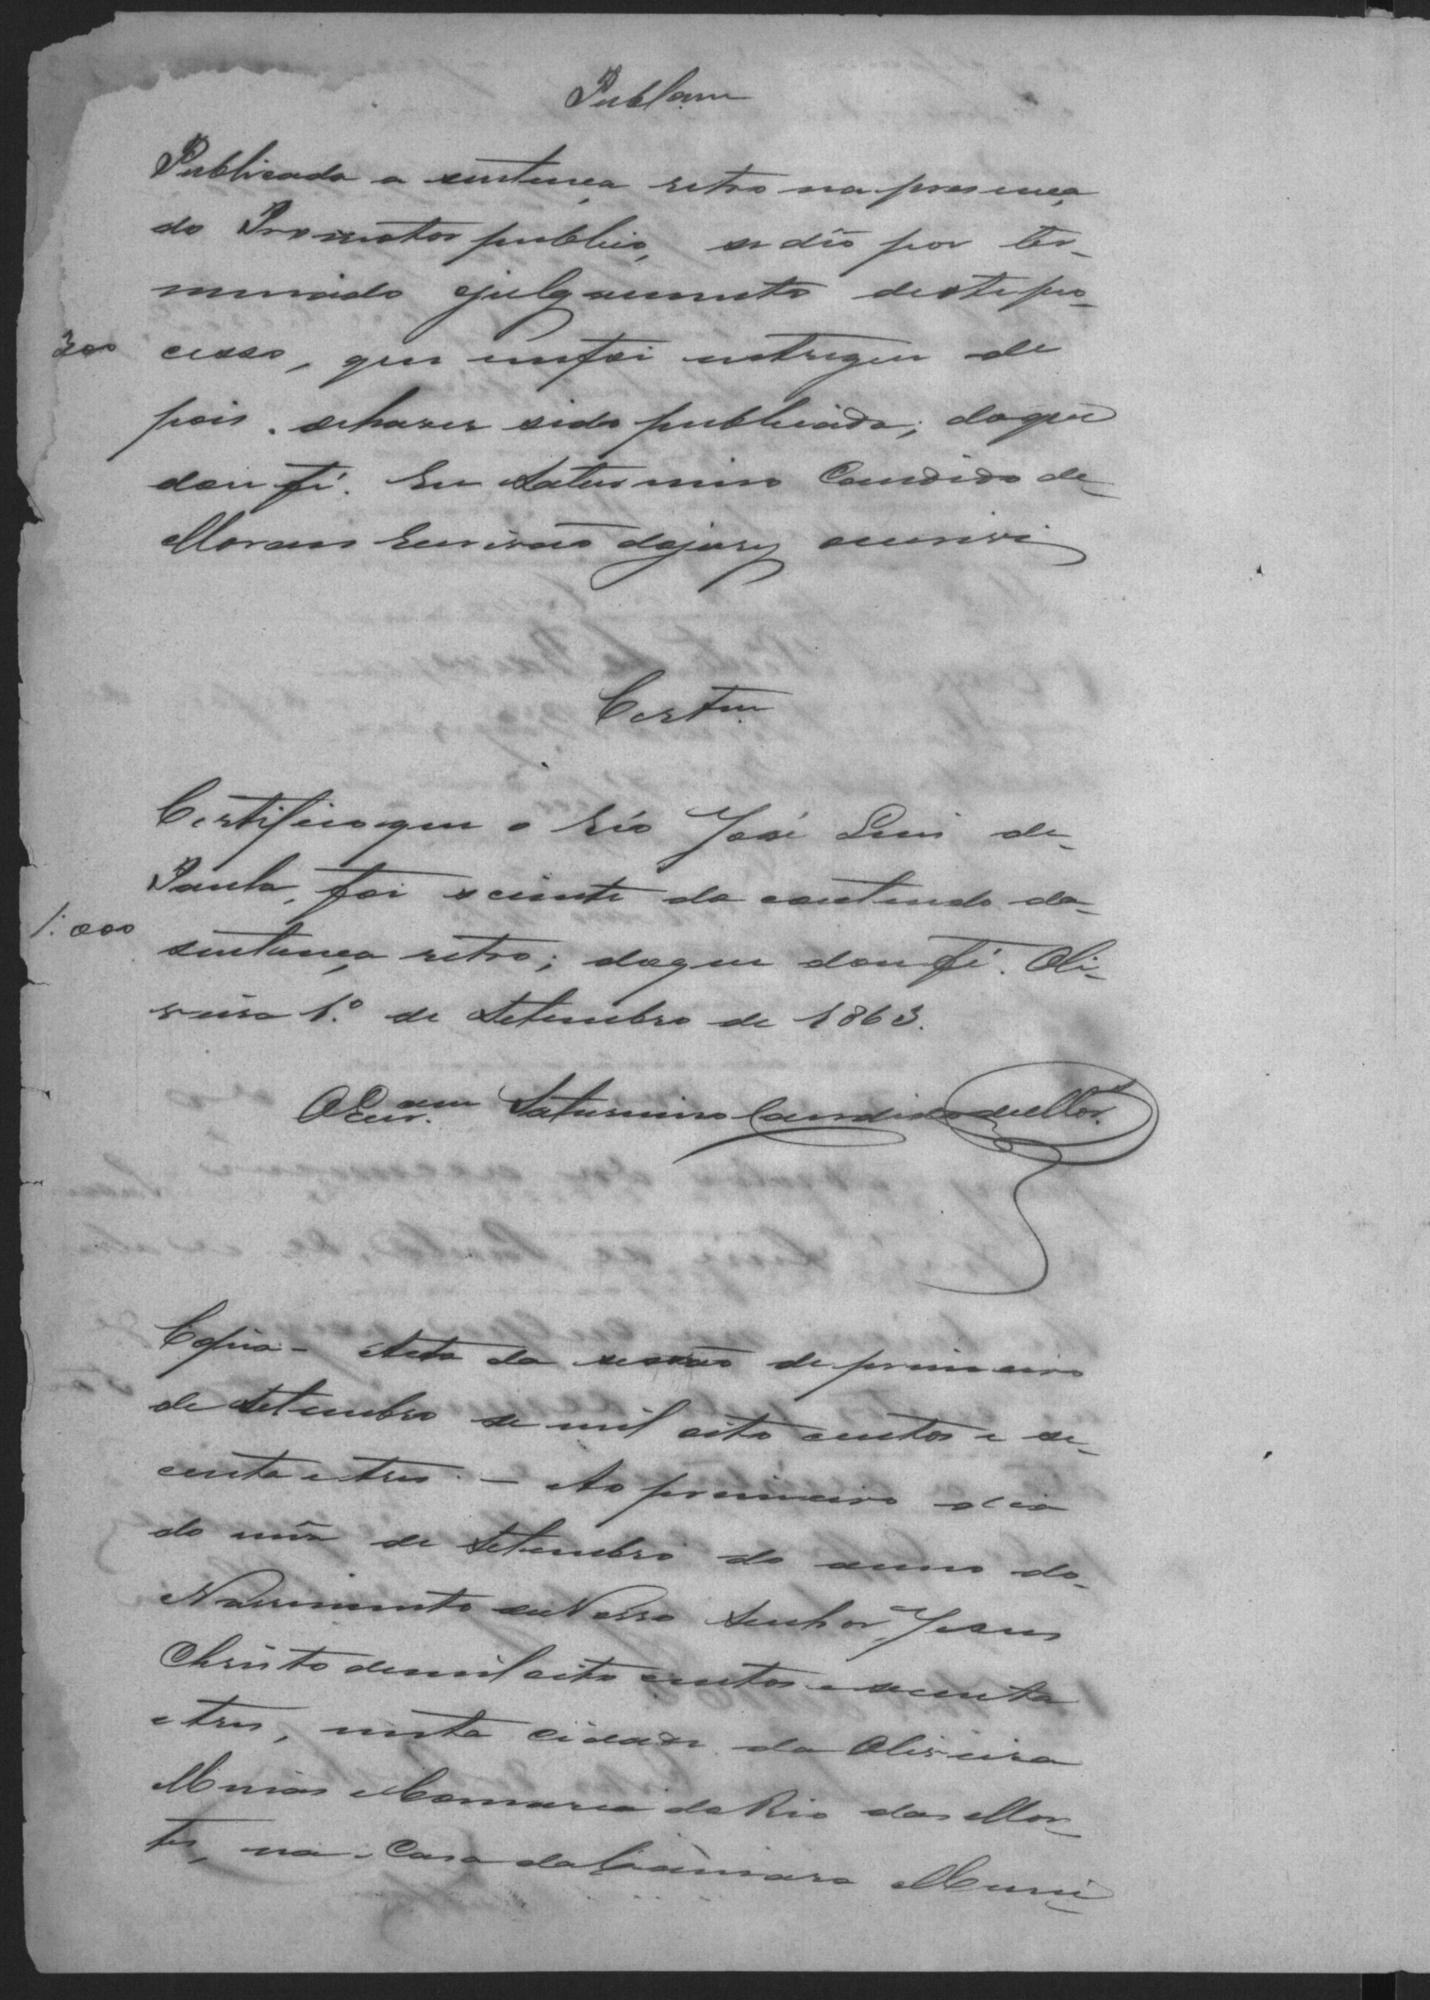 Publam
Publicada a sentença retro na presença
do Promotor publico, se dêo por ter-
minado ojulgamento destepro-
300 cesso, que mefoi entregue de
pois. dehaver sido publicada; doque
dou fé. Eu Saturnino Candido de
Moraes Escrivão dojury escrevi
Certam
Certificoque o Réo José Luis de
Paula, foi sciente do conteudo da
1:000 sentença retro; doque dou fé. Oli-
veira 1.º de Setembro de 1863.
O Escr.am Saturnino Candido deMor.es
Copia - Acta da sessão deprimeiro
de Setembro de mil oito centos e se-
centa etres. - Ao primeiro dia
do mês de Setembro do anno do
Nascimento deNosso Senhor Jesus
Christo demil oito centos esecenta
etres, nesta cidade da Oliveira
Minas eComarca do Rio das Mor-
tes, na Casa daCamara Muni